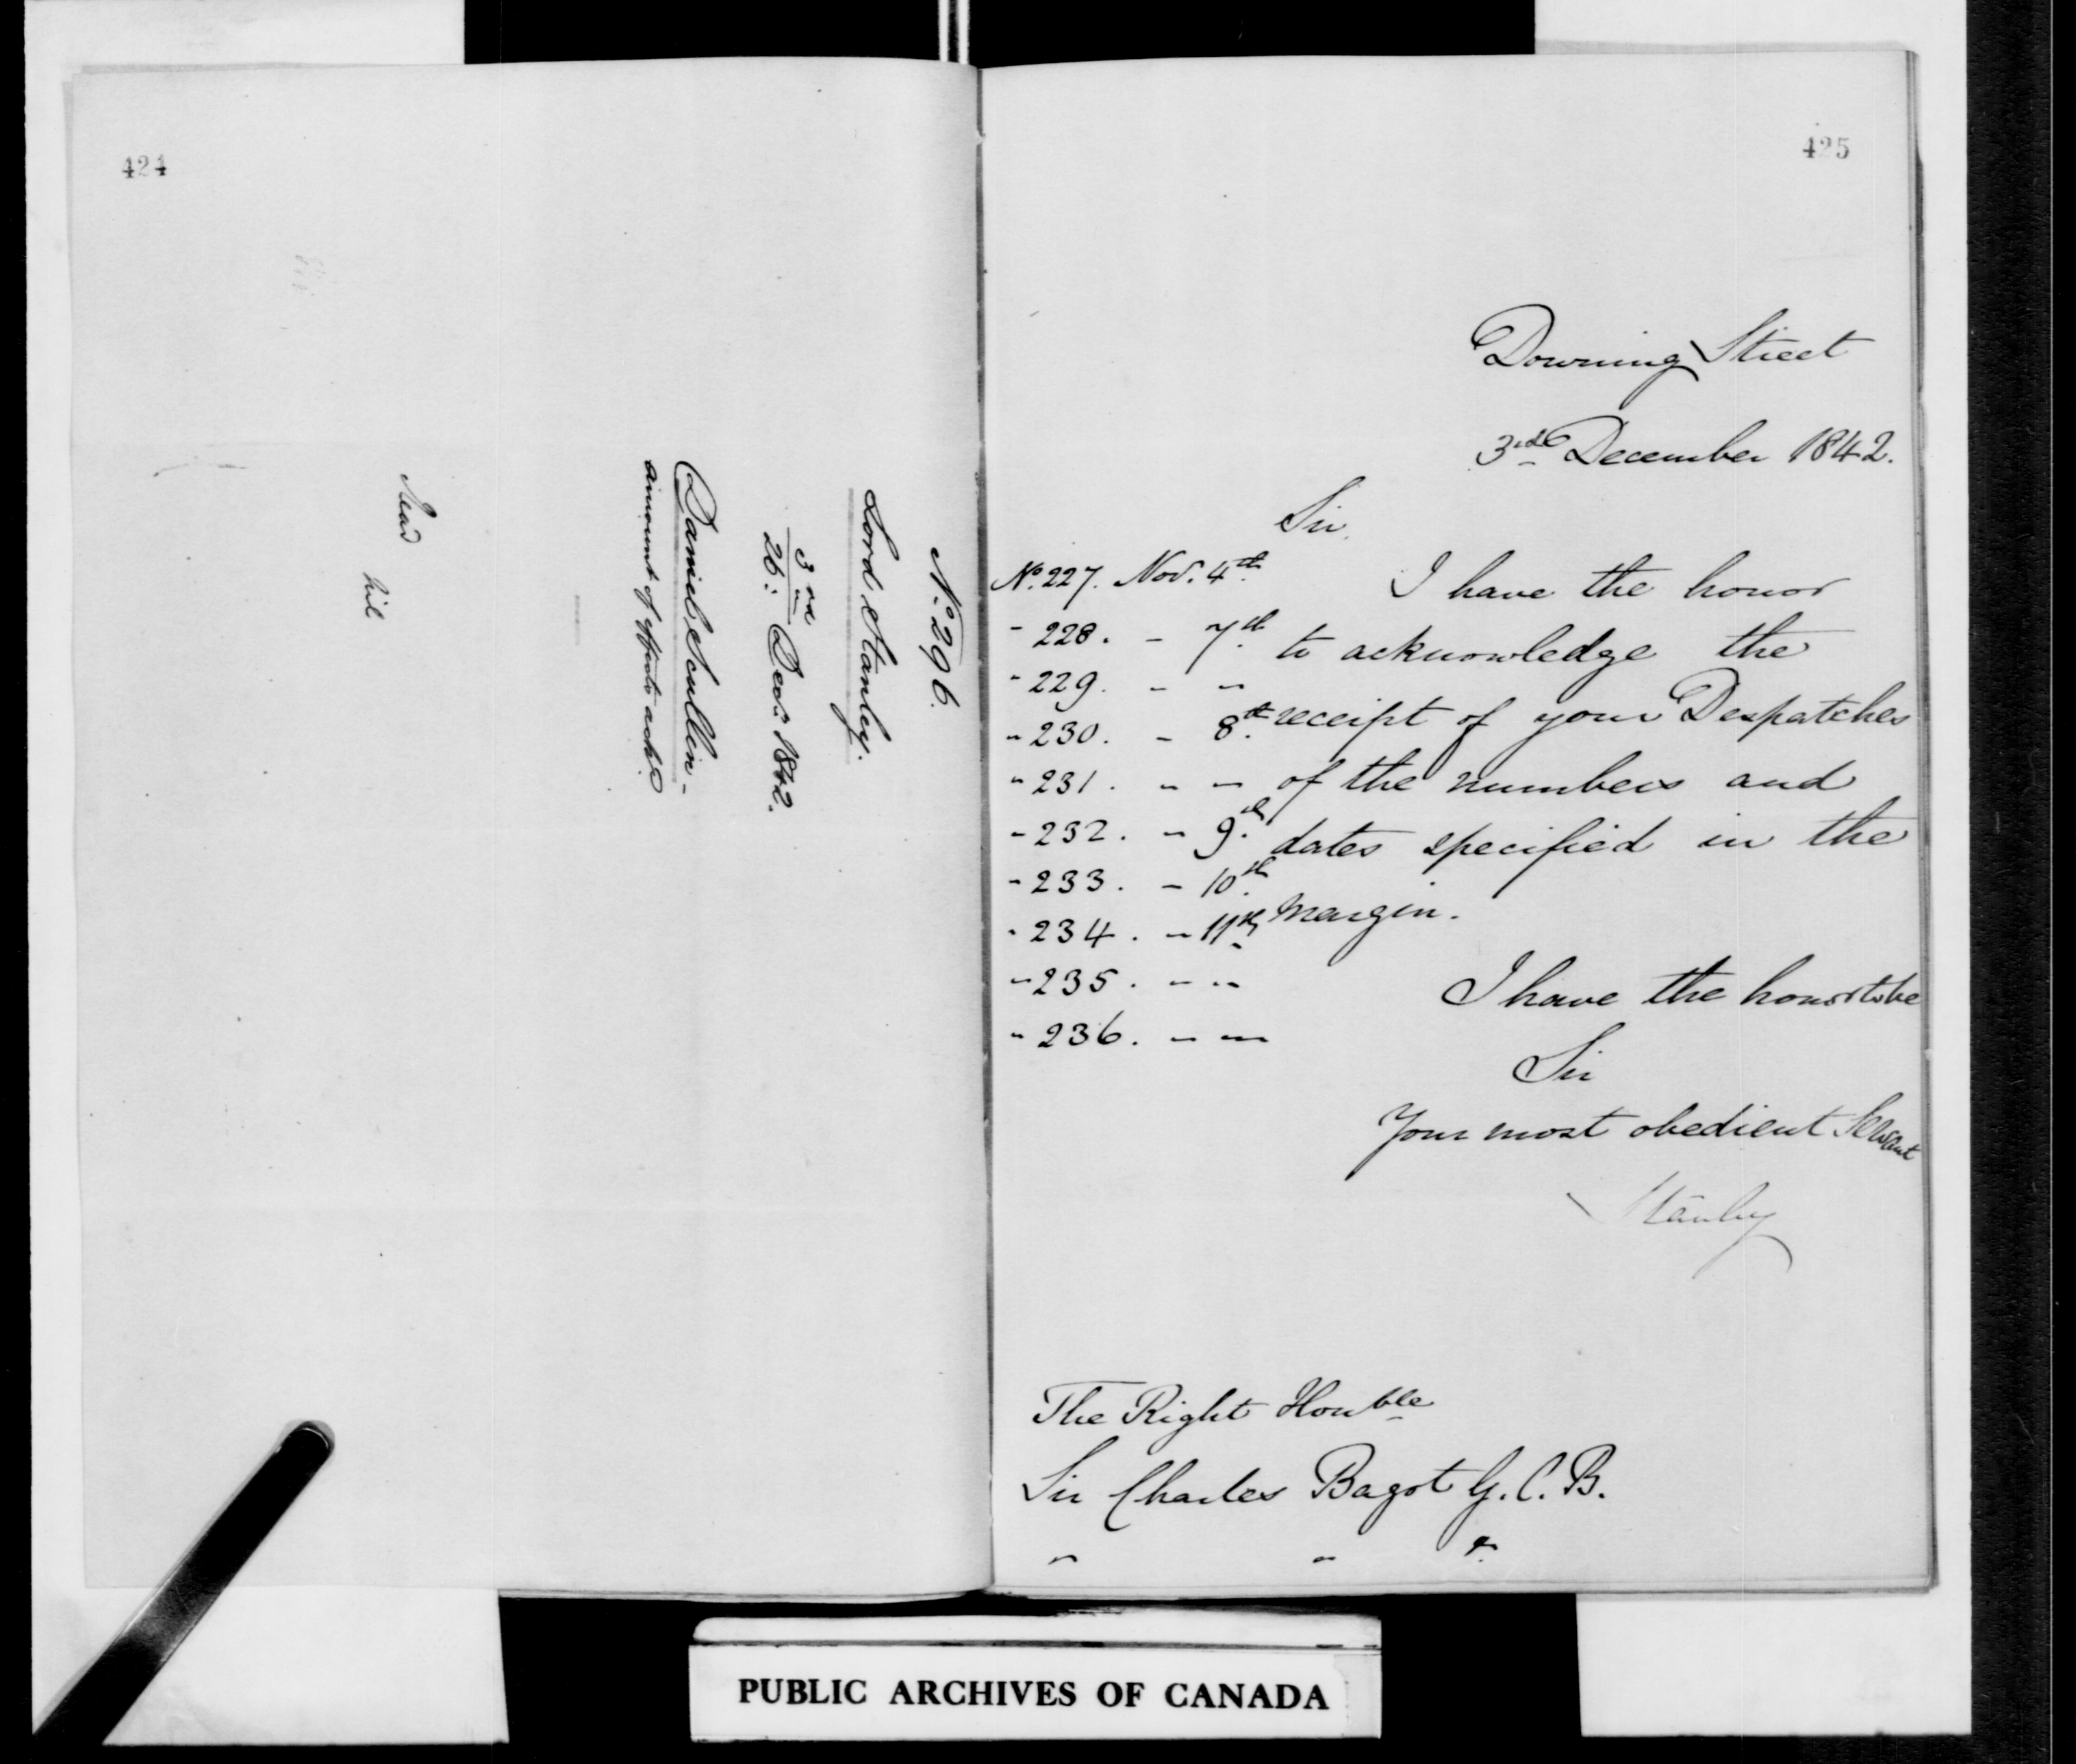 424
No. 296.
Lord Stanley.
3rd
26: Decr. 1842.
Daniel Scullin -
amount of effects ackd
Read
Nil
425
Downing Street
3rd December 1842.
Sir,
No. 227. Nov. 4th I have the honor
" 228. " 7th to acknowledge the
" 229. " "
" 230. " 8th receipt of your Despatches
" 231. " " of the numbers and
" 232. " 9th dates specified in the
" 233. " 10th
" 234. " 11th margin.
" 235. " "
" 236. " "
I have the honor to be
Sir
Your most obedient Servant
Stanley
The Right Honble
Sir Charles Bagot G.C.B.
" " &.
PUBLIC ARCHIVES OF CANADA